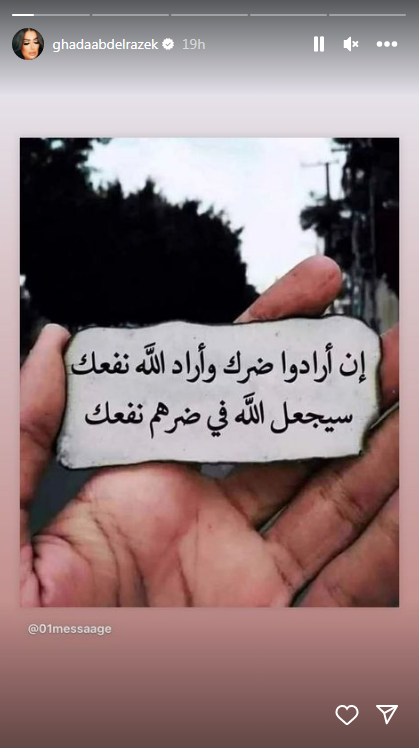 ghadaabdelrazek 19h
إن أرادوا ضرك وأراد اللَّه نفعك
سيجعل اللَّه في ضرهم نفعك
@01messaage